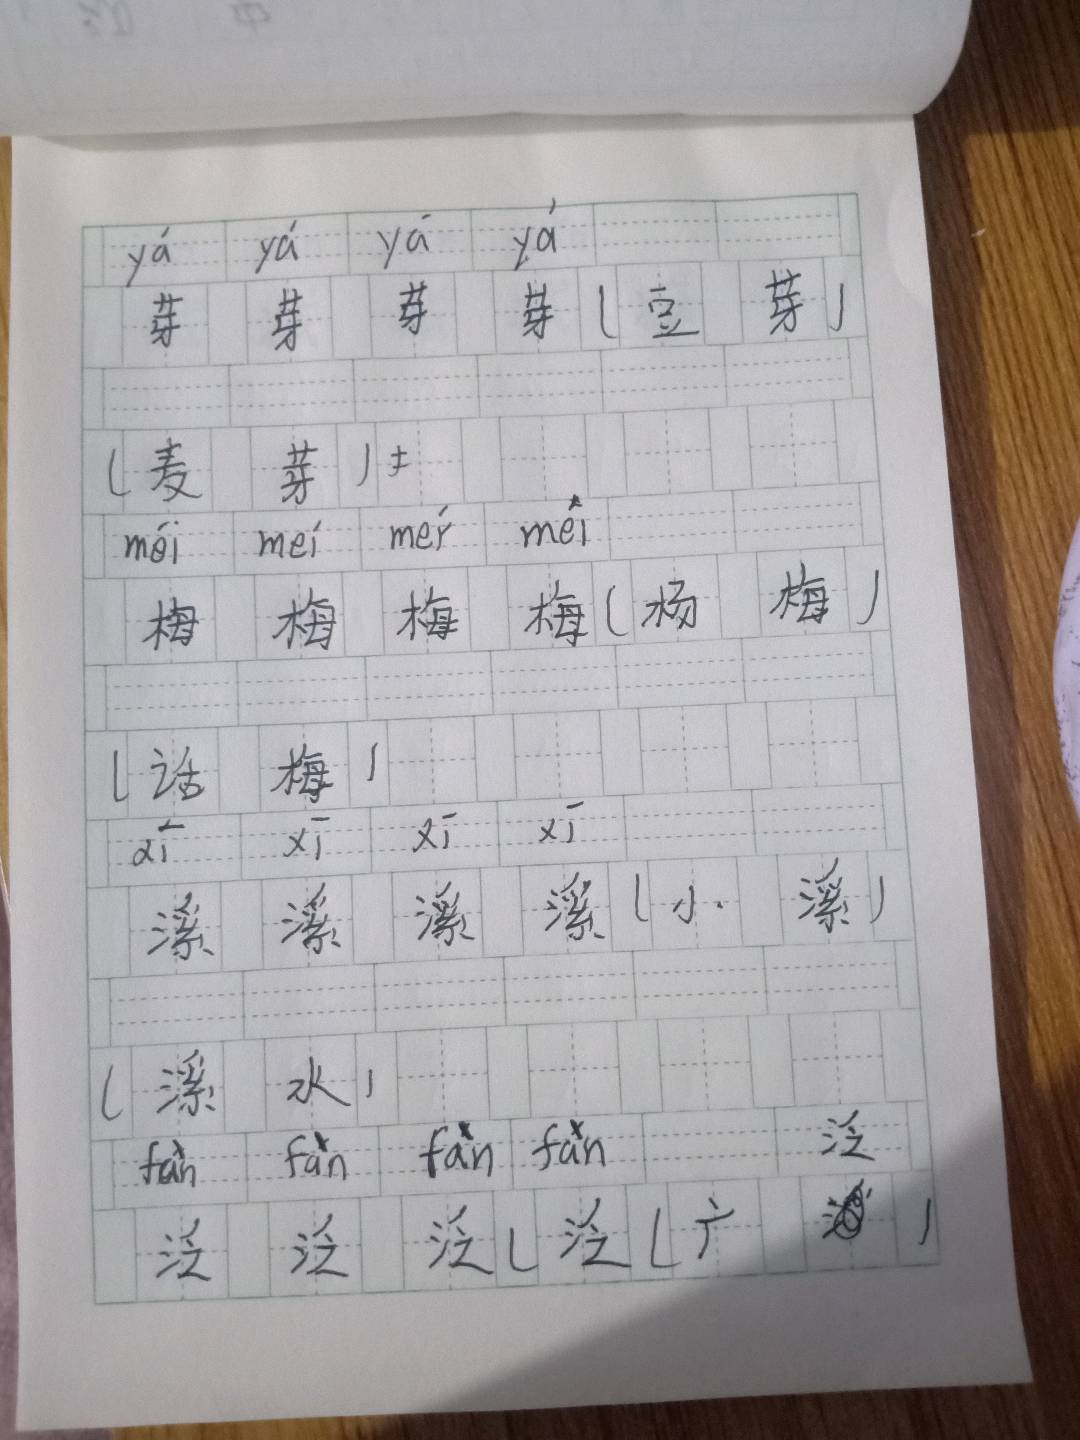 yá yá yá yá
芽 芽 芽 芽 ( 豆 芽 )
( 麦 芽 )
méi meí meí méi
梅 梅 梅 梅 ( 杨 梅 )
( 话 梅 )
xī xī xī xī
溪 溪 溪 溪 ( 小 溪 )
( 溪 水 )
fàn fàn fàn fàn 泛
泛 泛 泛 ( 泛 ( 广 )